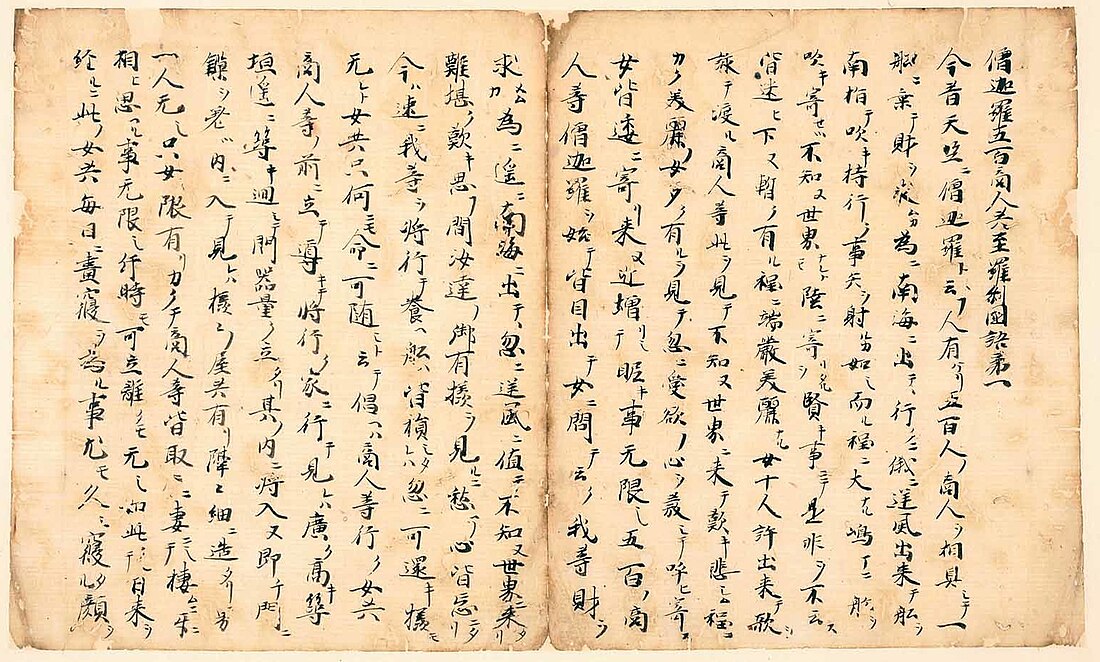 僧迦羅五百商人共至羅刹国語第一
今昔天竺ニ僧迦羅ト云フ人有ケリ五百人ノ商人ヲ相具シテ一
船ニ乗テ財ヲ求ムカ為ニ南海ニ出テ行クニ俄ニ逆風出来テ船ヲ
南指テ吹キ持行ク事矢ヲ射カ如シ而ル程ニ大ナル嶋ニ船ヲ
吹キ寄セツ不知ヌ世界ナレトモ陸ニ寄タルヲ賢キ事ニシテ是非ヲ不云ス
皆迷ヒ下ヌ暫ク有ル程ニ端厳美麗ナル女十人許出来テ歌ヲ
詠テ渡ル商人等此ヲ見テ不知ヌ世界ニ来テ歎キ悲シム程ニ
カク美麗ノ女多ク有ルヲ見テ忽ニ愛欲ノ心ヲ発シテ呼ヒ寄ス
女皆逶ニ寄リ来ヌ近増リシテ眤キ事无限シ五百ノ商
人等僧迦羅ヲ始テ皆目出テ女ニ問テ云ク我等財ヲ
求ムカ為ニ遥ニ南海ニ出テ忽ニ逆風ニ値テ不知ヌ世界ニ来レリ
難堪ク歎キ思フ間汝達ノ御有様ヲ見ルニ愁ノ心皆忘ニタリ
今ハ速ニ我等ヲ将行テ養ヘ船ハ皆損シタレハ忽ニ可還キ様モ
无シト女共只何ニモ命ニ可随シト云テ倡ヘハ商人等行ク女共
商人等ノ前ニ立テ導キテ将行ク家ニ行テ見レハ廣ク高キ築
垣遥ニ築キ廻シテ門器量ク立タリ其ノ内ニ将入ヌ即チ門ニ
鏁ヲ差ツ内ニ入テ見レハ様々ノ屋共有リ隔々細ニ造タリ男
一人无シ只女ノ限リ有リカクテ商人等皆取々ニ妻トシテ棲ムニ互ニ
相ヒ思ヘル事无限シ片時モ可立離クモ无シ如此クシテ日来ヲ
経ルニ此ノ女共毎日ニ晝寝ヲ為ル事尤モ久シ寝タル顔